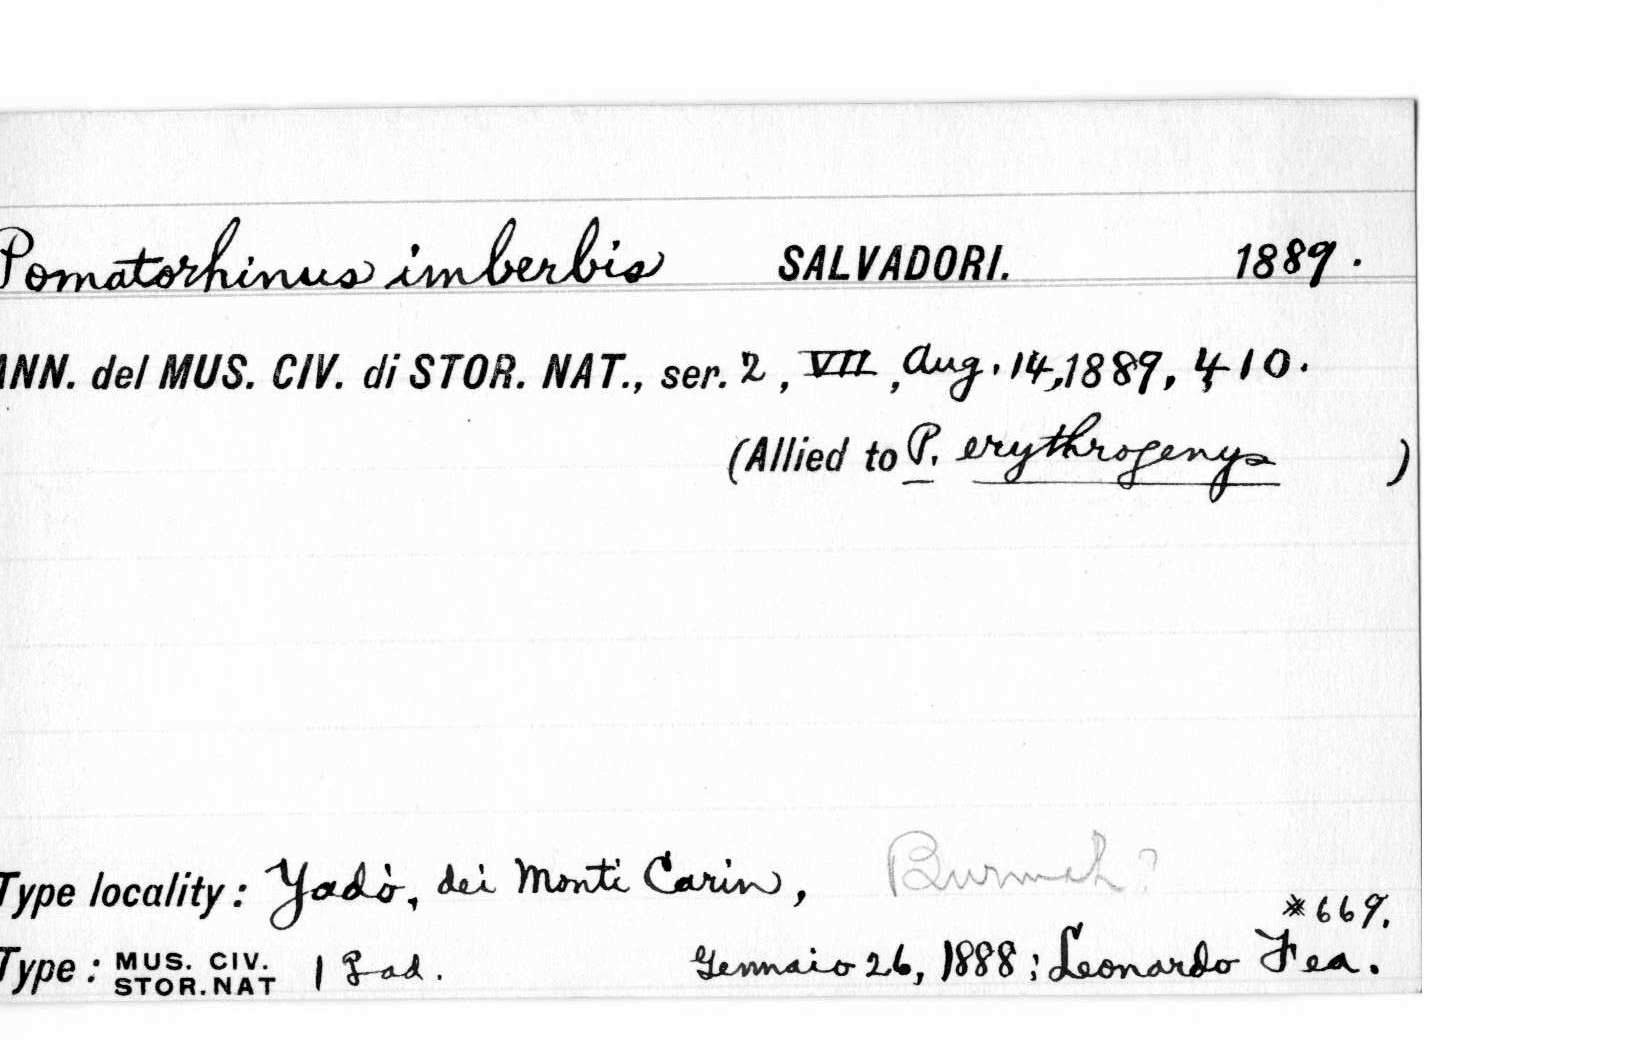 Pomatorhinus imberbis SALVADORI. 1889.
ANN. del MUS. CIV. di STOR. NAT., ser. 2, VII, Aug. 14, 1889, 410.
(Allied to P. erythrogenys )
Type locality: Yadò, dei Monti Carin, Burmah?
#669.
Type: MUS. CIV. STOR. NAT 1 ♀ ad. Gennaio 26, 1888; Leonardo Fea.